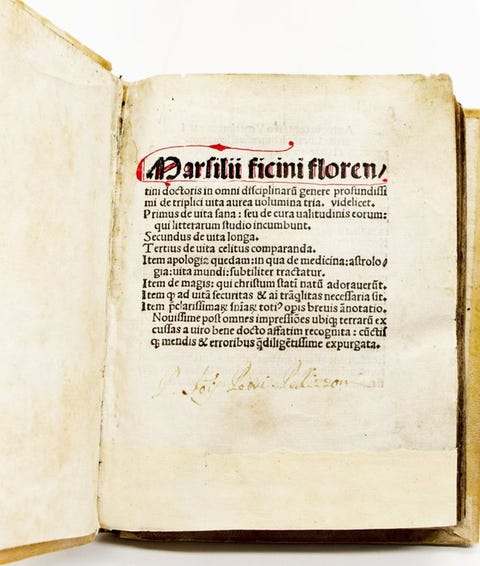 Marsilii ficini floren/
tini doctoris in omni disciplinarū genere profundissi
mi de triplici uita aurea uolumina tria. videlicet.
Primus de uita sana: seu de cura ualitudinis eorum:
qui litterarum studio incumbunt.
Secundus de uita longa.
Tertius de uita celitus comparanda.
Item apologiæ quedam: in qua de medicina: astrolo/
gia: uita mundi: subtiliter tractatur.
Item de magis: qui christum statī natū adorauerūt.
Item ꝙ ad uitā securitas & aī trāq̄litas necessaria sit.
Item p̄clarissimaꝝ sn̄iaꝝ toti⁹ opis breuis ānotatio.
Nouissime post omnes impressiōes ubiqꝫ terrarū ex
cussas a uiro bene docto affatim recognita: cūctis
qꝫ mendis & erroribus q̄diligētissime expurgata.